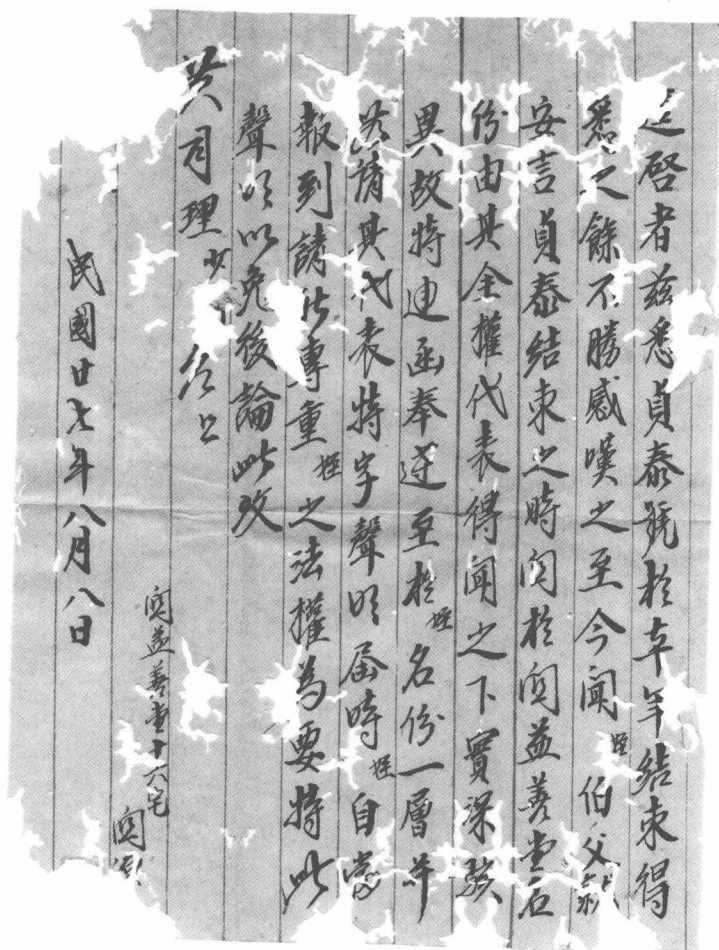 逕啓者茲悉貞泰號於辛年結束得
悉之餘不勝感嘆之至今聞姪伯父
安言貞泰結束之時関於関益善堂名
份由其全權代表得聞之下實深駭
異故特迪函奉達至於姪名份一層并
請其代表特字聲明届時姪自當
報到請此專重姪之法權為要特此
聲明以免後論此致
共司理
関益善堂十六宅 関
民國廿七年八月八日